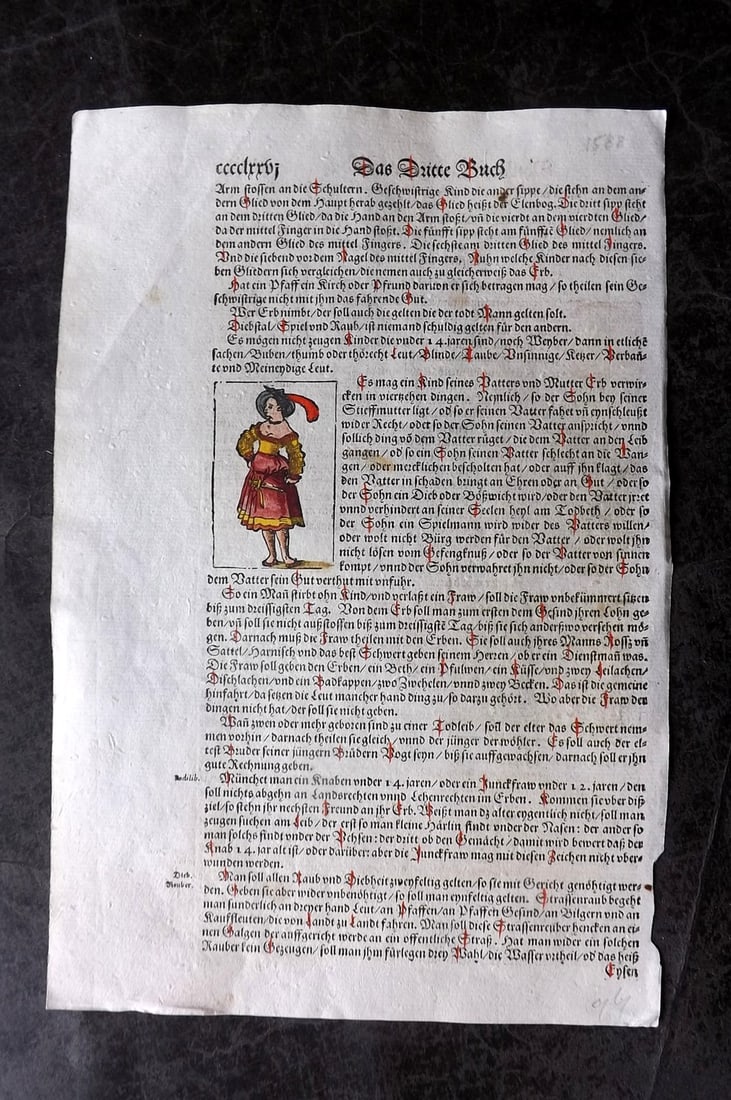 cccclxxvj Das Dritte Buch
Arm stossen an die Schultern. Geschwistrige Kind die ander sippe/ die stehn an dem an-
dern Glied von dem Haupt herab gezehlt/ das Glied heißt der Elenbog. Die dritt sipp steht
an dem dritten Glied/ da die Hand an den Arm stoßt/ vñ die vierdt an dem vierdten Glied/
da der mittel Finger in die Hand stoßt. Die fünfft sipp steht am fünfftẽ Glied/ nemlich an
dem andern Glied des mittel Fingers. Die sechste am dritten Glied des mittel Fingers.
Vnd die siebend vor dem Nagel des mittel Fingers. Nuhn welche Kinder nach diesen sie-
ben Gliedern sich vergleichen/ die nemen auch zu gleicherweiß das Erb.
Hat ein Pfaff ein Kirch oder Pfrund daruon er sich betragen mag/ so theilen sein Ge-
schwistrige nicht mit jhm das fahrende Gut.
Wer Erb nimbt/ der soll auch die gelten die der todt Mann gelten solt.
Diebstal/ Spiel vnd Raub/ ist niemand schuldig gelten für den andern.
Es mögen nicht zeugen Kinder die vnder 14. jaren sind/ noch Weyber/ dann in etlichẽ
sachen/ Buben/ thumb oder thörecht Leut/ Blinde/ Taube/ Vnsinnige/ Ketzer/ Verbañ-
te vnd Meineydige Leut.
Es mag ein Kind seines Vatters vnd Mutter Erb verwir-
cken in viertzehen dingen. Nemlich/ so der Sohn bey seiner
Stieffmutter ligt/ od so er seinen Vatter fahet vñ eynschleußt
wider Recht/ oder so der Sohn seinen Vatter anspricht/ vnnd
sollich ding võ dem Vatter rüget/ die dem Vatter an den Leib
gangen/ od so ein Sohn seinen Vatter schlecht an die Wan-
gen/ oder mercklichen bescholten hat/ oder auff jhn klagt/ das
den Vatter in schaden bringt an Ehren oder an Gut/ oder so
der Sohn ein Dieb oder Bößwicht wird/ oder den Vatter jrret
vnnd verhindert an seiner Seelen heyl am Todbeth/ oder so
der Sohn ein Spielmann wird wider des Vatters willen/
oder wolt nicht Bürg werden für den Vatter/ oder wolt jhn
nicht lösen vom Gefengknuß/ oder so der Vatter von sinnen
kompt/ vnnd der Sohn verwahret jhn nicht/ oder so der Sohn
dem Vatter sein Gut verthut mit vnfuhr.
So ein Mañ stirbt ohn Kind/ vnd verlaßt ein Fraw/ soll die Fraw vnbekümmert sitzen
biß zum dreissigsten Tag. Von dem Erb soll man zum ersten dem Gesind jhren Lohn ge-
ben/ vñ soll sie nicht außstoßen biß zum dreissigstẽ Tag/ biß sie sich anderßwo versehen mö-
gen. Darnach muß die Fraw theilen mit den Erben. Sie soll auch jhres Manns Rossz vñ
Sattel/ Harnisch vnd das best Schwert geben seinem Herren/ ob er ein Dienstmañ was.
Die Fraw soll geben den Erben/ ein Beth/ ein Pfulwen/ ein Küsse/ vnd zwey Leilachen/
Dischlachen/ vnd ein Badkappen/ zwo Zwehelen/ vnnd zwey Becken. Das ist die gemeine
hinfahrt/ da setzen die Leut mancher hand ding zu/ so darzu gehört. Wo aber die Fraw der
dingen nicht hat/ der soll sie nicht geben.
Wañ zwen oder mehr geboren sind zu einer Todleib/ soñ der elter das Schwert nem-
men vorhin/ darnach theilen sie gleich/ vnnd der jünger der wöhler. Es soll auch der el-
test Bruder seiner jüngern Brüdern Vogt seyn/ biß sie auffgewachsen/ darnach soll er jhn
gute Rechnung geben.
Münchet man ein Knaben vnder 14. jaren/ oder ein Junckfraw vnder 12. jaren/ den
soll nichts abgehn an Landsrechten vnnd Lehenrechten im Erben. Kommen sie vber diß
ziel/ so stehn jhr nechsten Freund an jhr Erb. Weißt man dz alter eygentlich nicht/ soll man
zeugen suchen am Leib/ der erst so man kleine Härlin findt vnder der Nasen: der ander so
man solchs findt vnder der Vchsen: der dritt ob den Gemächt/ damit wird bewert daß der
Knab 14. jar alt ist/ oder darüber: aber die Junckfraw mag mit diesen Zeichen nicht vber-
wunden werden.
Dieb.
Reuber.
Man soll allen Raub vnd Diebheit zweyfeltig gelten/ so sie mit Gericht genöhtigt wer-
den. Geben sie aber wider vnbenöhtigt/ so soll man eynfeltig gelten. Strassenraub begeht
man sunderlich an dreyer hand Leut/ an Pfaffen/ an Pfaffen Gesind/ an Bilgern vnd an
Kauffleuten/ die von Landt zu Landt fahren. Man soll diese Strassenreuber hencken an ei-
nen Galgen der auffgericht werde an ein offentliche Straß. Hat man wider ein solchen
Rauber kein Gezeugen/ soll man jhm fürlegen drey Wahl/ die Wasser vrtheil/ od das heiß
Eysen